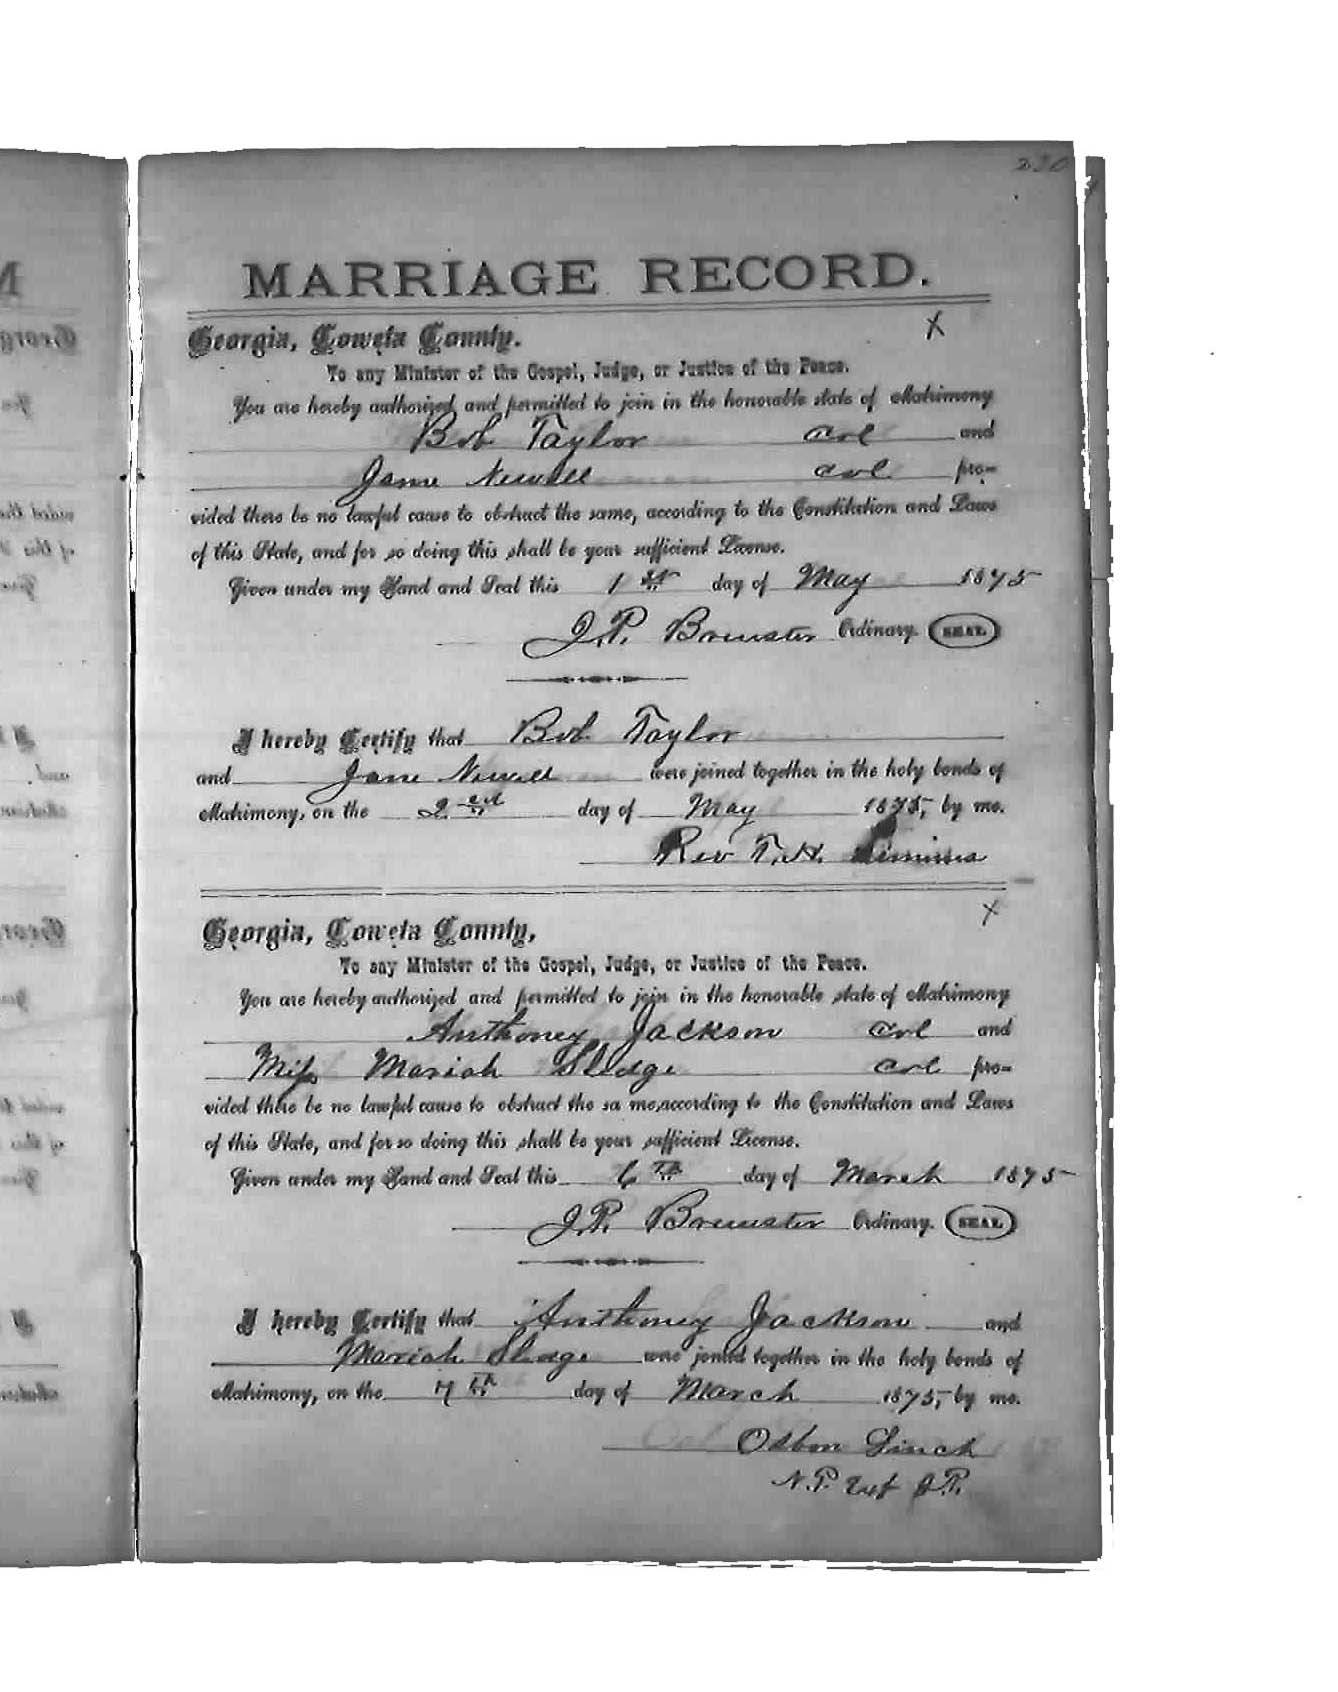 230
MARRIAGE RECORD.
Georgia, Coweta County. X
To any Minister of the Gospel, Judge, or Justice of the Peace.
You are hereby authorized and permitted to join in the honorable state of Matrimony
Bob Taylor col and
Jane Newell col pro-
vided there be no lawful cause to obstruct the same, according to the Constitution and Laws
of this State, and for so doing this shall be your sufficient License.
Given under my Hand and Seal this 1st day of May 1875
J.P. Brewster Ordinary. SEAL
I hereby Certify that Bob Taylor
and Jane Newell were joined together in the holy bonds of
Matrimony, on the 2nd day of May 1875, by me.
Rev T.H.
Georgia, Coweta County, X
To any Minister of the Gospel, Judge, or Justice of the Peace.
You are hereby authorized and permitted to join in the honorable state of Matrimony
Anthoney Jackson col and
Miss Mariah Sledge col pro-
vided there be no lawful cause to obstruct the sa me, according to the Constitution and Laws
of this State, and for so doing this shall be your sufficient License.
Given under my Hand and Seal this 6th day of March 1875
J.P. Brewster Ordinary. SEAL
I hereby Certify that Anthoney Jackson and
Mariah Sledge were joined together in the holy bonds of
Matrimony, on the 7th day of March 1875, by me.
Osbon Linch
N.P. Exf J.P.